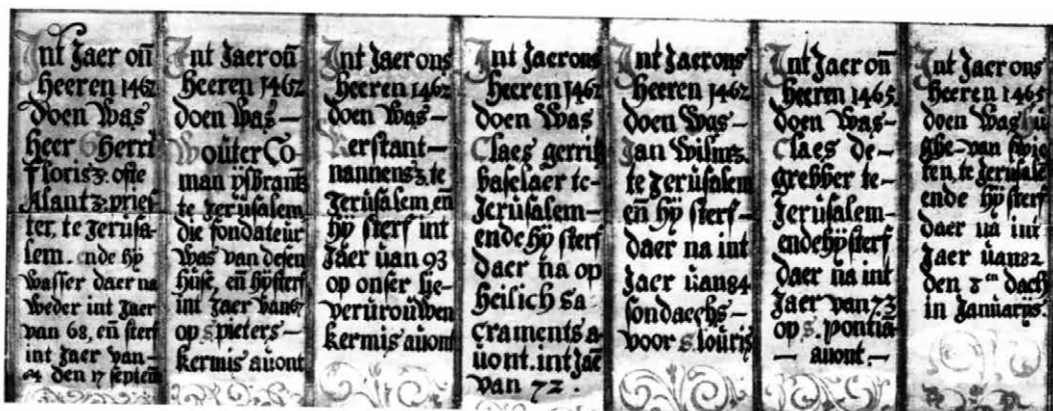 Int Jaer oñ
Heeren 1462
doen was
Heer Gherrit
Florisz: ofte
Alantz: pries-
ter, te Jerusa-
lem. ende hÿ
wasser daer na
weder int Jaer
van 68, eñ sterf
int Jaer van-
den 17 septem
Int Jaer oñ
Heeren 1462
doen was-
Woúter Co-
man ÿsbrantsz
te Jerúsalem
die fondateúr
was van desen
húse, eñ hÿ sterf
int Jaer van67
op s pieters-
kermis aúont
Int Jaer ons
Heeren 1462
doen was-
Kerstant-
nannensz. te
Jerúsalem, eñ
hÿ sterf int
Jaer úan 93
op onser lie-
verúroúwen
kermis aúont
Int Jaer ons
Heeren 1462
doen was
Claes gerritsz
baselaer te-
Jerúsalem-
ende hÿ sterf
daer na op
heilich sa
craments a
úont. int Jaer
van 72.
Int Jaer ons
Heeren 1462
doen was-
Jan Wilmsz.
te Jerúsalem
eñ hÿ sterf-
daer na int
Jaer úan84
sondaechs-
voor s. loúris
Int Jaer oñ
Heeren 1465
doen was-
Claes de-
grebber te-
Jerúsalem-
ende hÿ sterf
daer na int
Jaer van 73
op s. pontia-
- auont -
Int Jaer ons
Heeren 1465
doen was hú
ghe-van
ten, te Jerúsale
ende hÿ sterf
daer na int
Jaer úan82
den 8en dach
in Januarÿs.